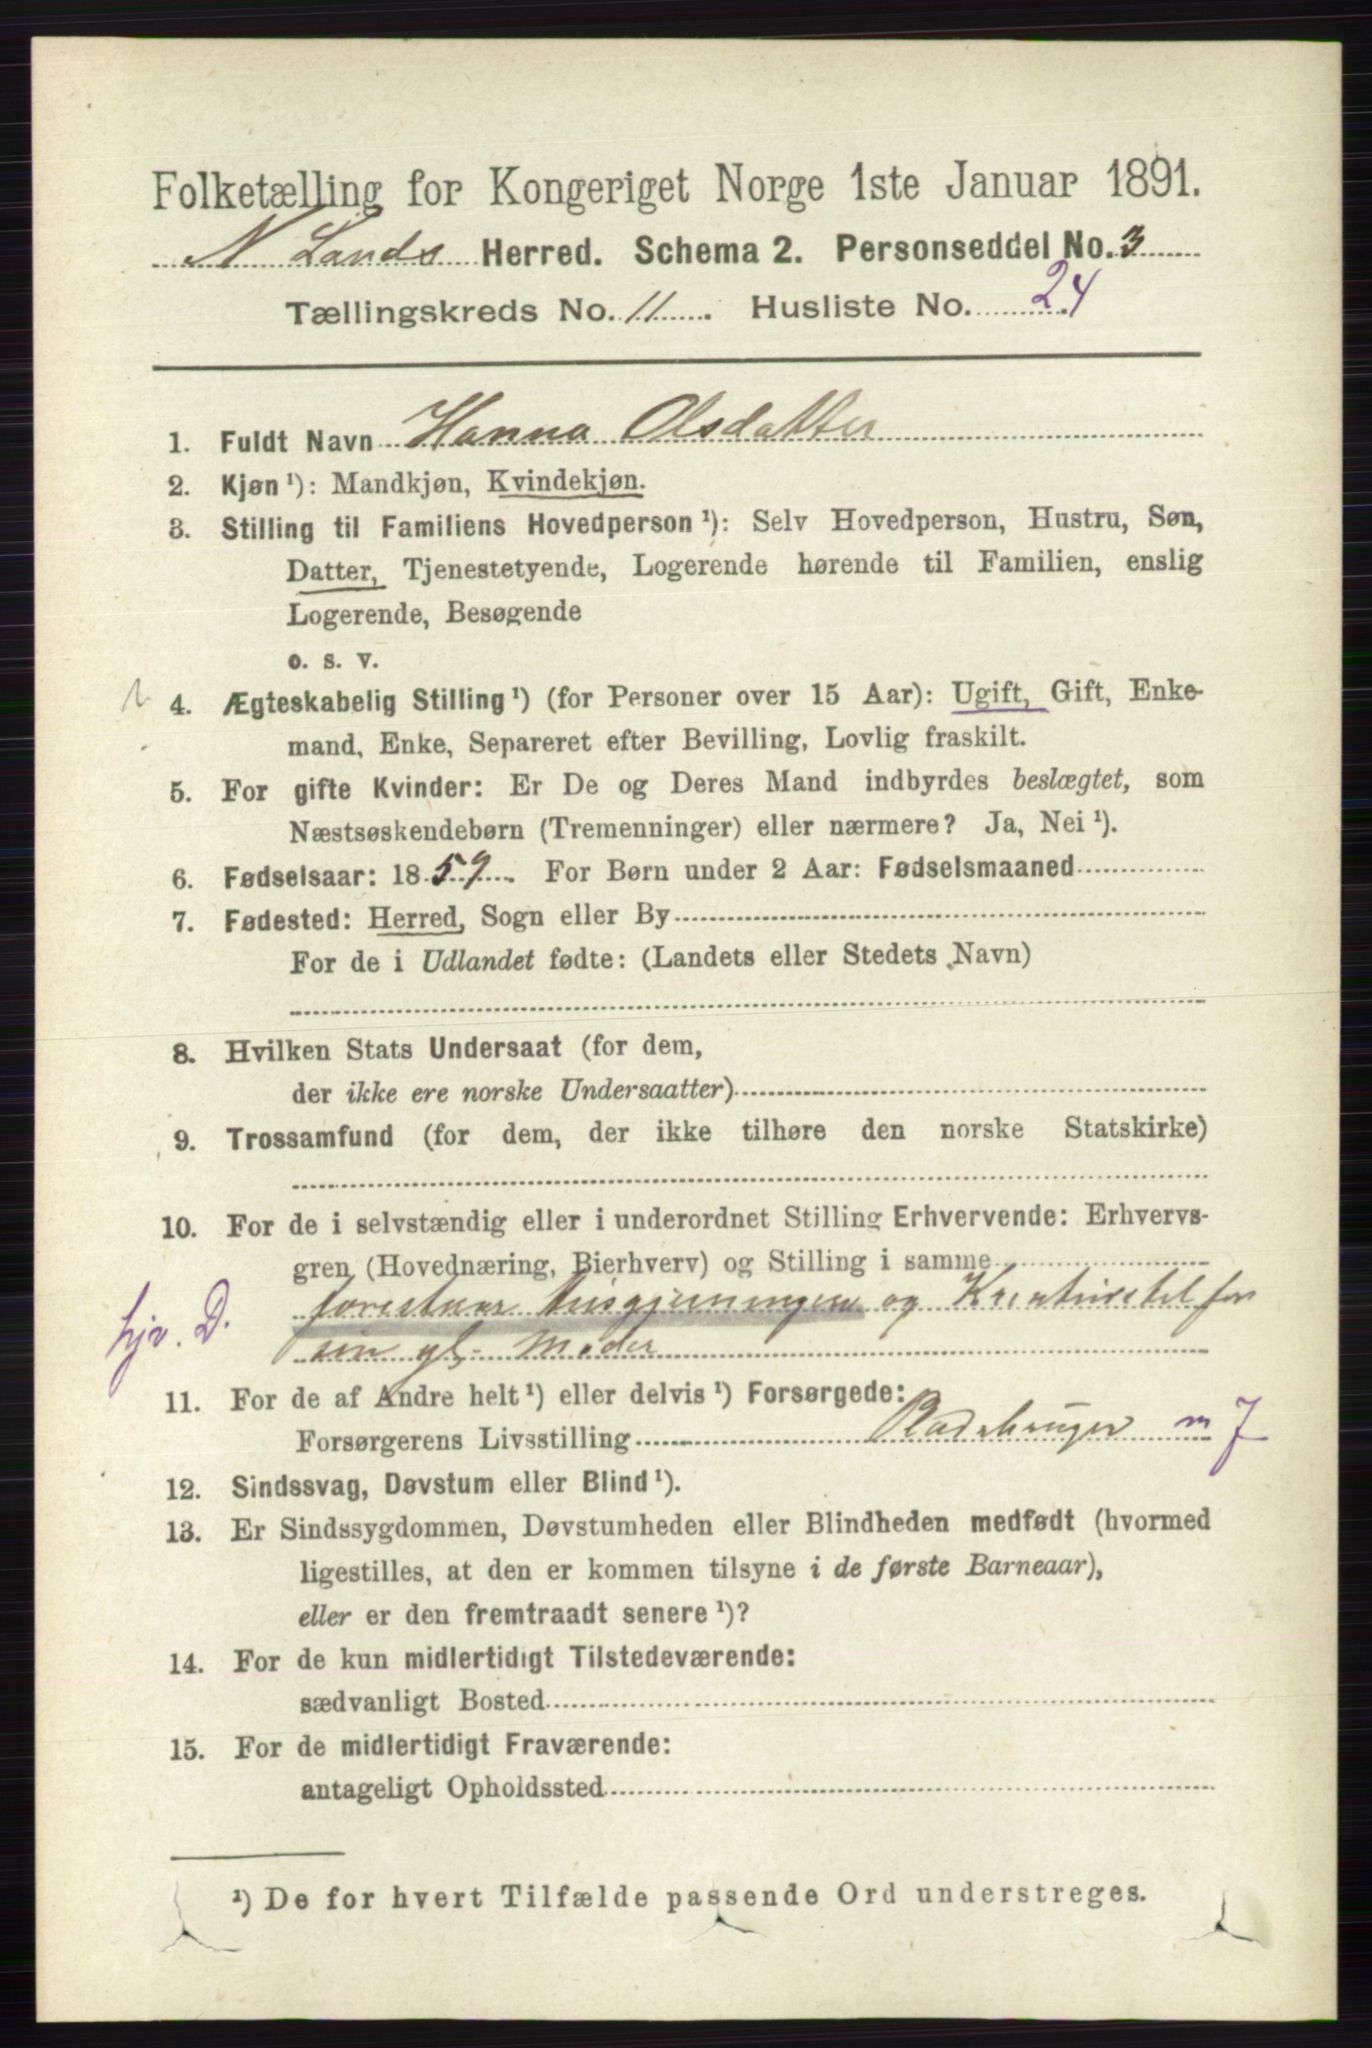 Folketælling for Kongeriget Norge 1ste Januar 1891.
N Lands Herred. Schema 2. Personseddel No. 3
Tællingskreds No. 11. Husliste No. 24
1. Fuldt Navn Hanna Olsdatter
2. Kjøn ¹): Mandkjøn, Kvindekjøn.
3. Stilling til Familiens Hovedperson ¹): Selv Hovedperson, Hustru, Søn,
Datter, Tjenestetyende, Logerende hørende til Familien, enslig
Logerende, Besøgende
o. s. v.
4. Ægteskabelig Stilling ¹) (for Personer over 15 Aar): Ugift, Gift, Enke-
mand, Enke, Separeret efter Bevilling, Lovlig fraskilt.
5. For gifte Kvinder: Er De og Deres Mand indbyrdes beslægtet, som
Næstsøskendebørn (Tremenninger) eller nærmere? Ja, Nei ¹).
6. Fødselsaar: 1859. For Børn under 2 Aar: Fødselsmaaned
7. Fødested: Herred, Sogn eller By
For de i Udlandet fødte: (Landets eller Stedets Navn)
8. Hvilken Stats Undersaat (for dem,
der ikke ere norske Undersaatter)
9. Trossamfund (for dem, der ikke tilhøre den norske Statskirke)
10. For de i selvstændig eller i underordnet Stilling Erhvervende: Erhvervs-
gren (Hovednæring, Bierhverv) og Stilling i samme
forestaar Husgjerningen og Kreaturstel for
hjv. D.
sin gl. Moder
11. For de af Andre helt ¹) eller delvis ¹) Forsørgede:
Forsørgerens Livsstilling Pladsbruger m 7
12. Sindssvag, Døvstum eller Blind ¹).
13. Er Sindssygdommen, Døvstumheden eller Blindheden medfødt (hvormed
ligestilles, at den er kommen tilsyne i de første Barneaar),
eller er den fremtraadt senere ¹)?
14. For de kun midlertidigt Tilstedeværende:
sædvanligt Bosted
15. For de midlertidigt Fraværende:
antageligt Opholdssted
¹) De for hvert Tilfælde passende Ord understreges.